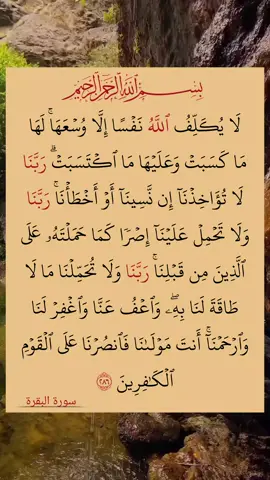 بِسْمِ ٱللَّهِ ٱلرَّحْمَٰنِ ٱلرَّحِيمِ
لَا يُكَلِّفُ ٱللَّهُ نَفْسًا إِلَّا وُسْعَهَا ۚ لَهَا
مَا كَسَبَتْ وَعَلَيْهَا مَا ٱكْتَسَبَتْ ۗ رَبَّنَا
لَا تُؤَاخِذْنَآ إِن نَّسِينَآ أَوْ أَخْطَأْنَا ۚ رَبَّنَا
وَلَا تَحْمِلْ عَلَيْنَآ إِصْرًا كَمَا حَمَلْتَهُۥ عَلَى
الَّذِينَ مِن قَبْلِنَا ۚ رَبَّنَا وَلَا تُحَمِّلْنَا مَا لَا
طَاقَةَ لَنَا بِهِۦ ۖ وَٱعْفُ عَنَّا وَٱغْفِرْ لَنَا
وَٱرْحَمْنَآ ۚ أَنتَ مَوْلَىٰنَا فَٱنصُرْنَا عَلَى الْقَوْمِ
الْكَٰفِرِينَ ٢٨٦
سورة البقرة